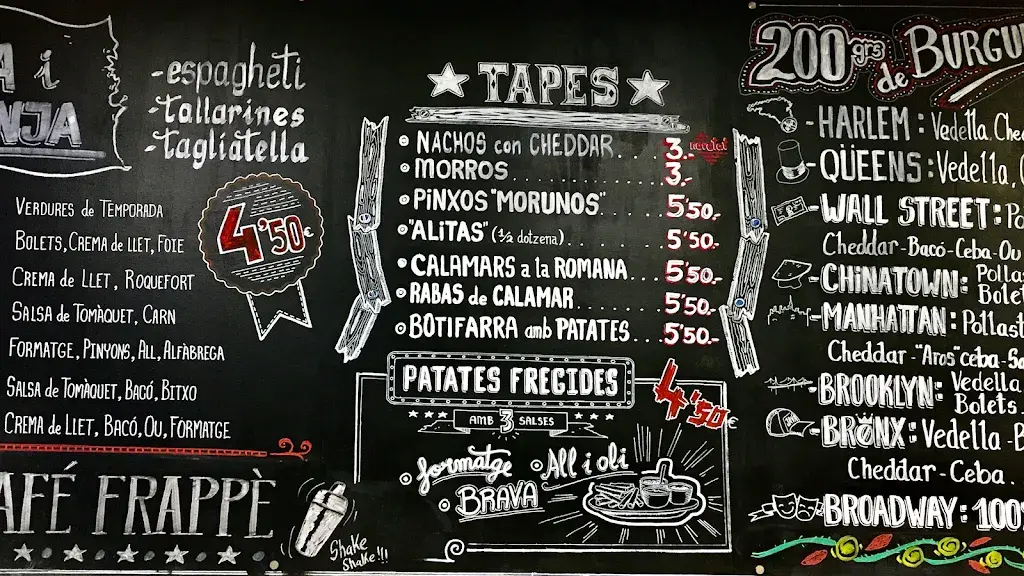 A i
NJA
-espagheti
-tallarines
-tagliatella
VERDURES de TEMPORADA
BOLETS, CREMA de LLET, FOIE
CREMA de LLET, ROQUEFORT
SALSA de TOMÀQUET, CARN
FORMATGE, PINYONS, ALL, ALFÀBREGA
SALSA de TOMÀQUET, BACÓ, BITXO
CREMA de LLET, BACÓ, OU, FORMATGE
4'50€
AFÉ FRAPPÈ
Shake
Shake!!!
TAPES
NACHOS con CHEDDAR.... 3.-
MORROS............ 3.-
PiNXOS "MORUNOS".... 5'50.-
"ALiTAS" (½ dotzena)........ 5'50.-
CALAMARS a la ROMANA.. 5'50.-
RABAS de CALAMAR....... 5'50.-
BOTIFARRA amb PATATES... 5'50.-
PATATES FREGIDES
4'50€
AMB 3 SALSES
formatge
All i oli
BRAVA
200grs
de BURGU
-HARLEM: Vedella Che
-QÜEENS: Vedella,
-WALL STREET: Po
Cheddar-Bacó-Ceba-Ou
-CHINATOWN: Pollas
Bolet
-MANHATTAN: Pollast
Cheddar-"Aros" ceba-Sa
-BROOKLYN: Vedella
Bolets
-BRONX: Vedella-B
Cheddar-Ceba.
BROADWAY: 100%